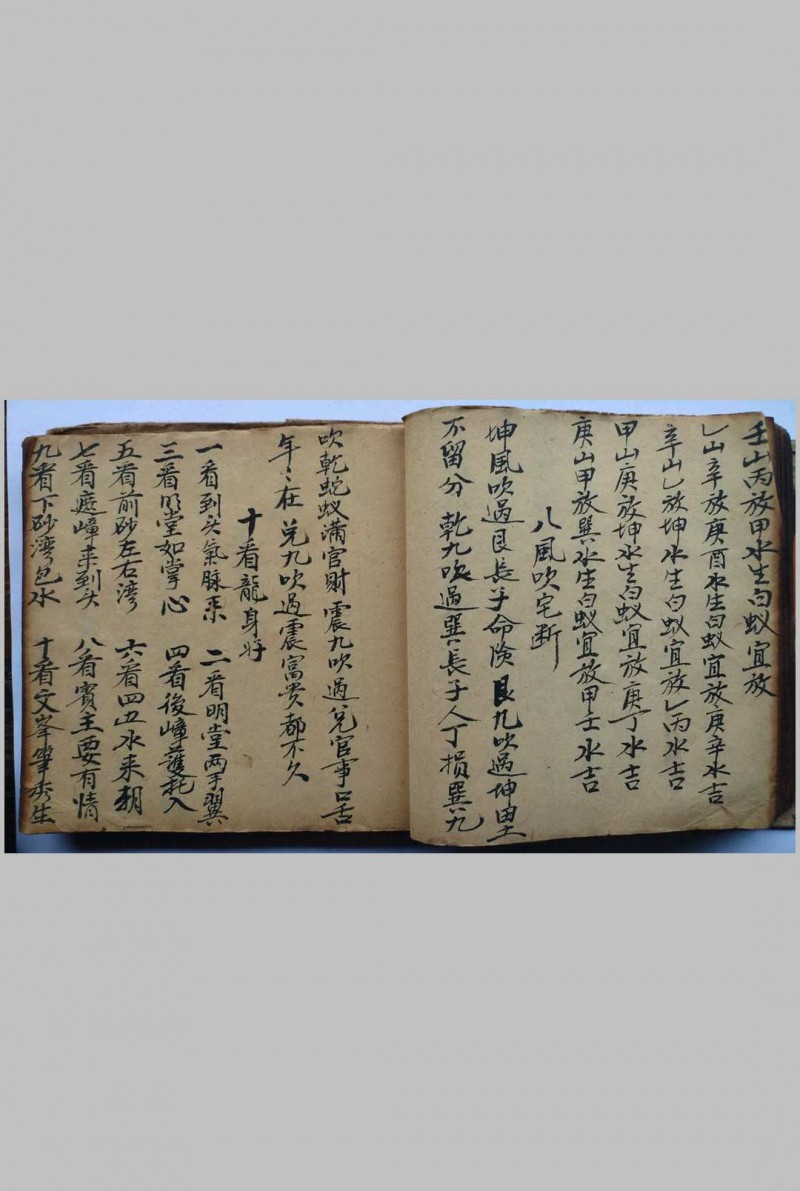 壬山丙放甲水生白蚁宜放
乙山辛放庚酉水生白蚁宜放庚辛水吉
辛山乙放坤水生白蚁宜放乙丙水吉
甲山庚放坤水生白蚁宜放庚丁水吉
庚山甲放巽水生白蚁宜放甲壬水吉
八風吹宅断
坤風吹過艮長子命险艮九吹過坤田
不留分 乾九吹過巽長子人丁損巽九
吹乾蛇蚁满官财震九吹過兌官事口舌
年〻在 兌九吹過震富贵都不久
十看龍身好
一看到头氣脉来 二看明堂两手翼
三看明堂如掌心 四看後嶂護托入
五看前砂左右湾 六看四山水来朝
七看嶂来到头 八看賓主要有情
九看下砂湾包水 十看文峯筆秀生